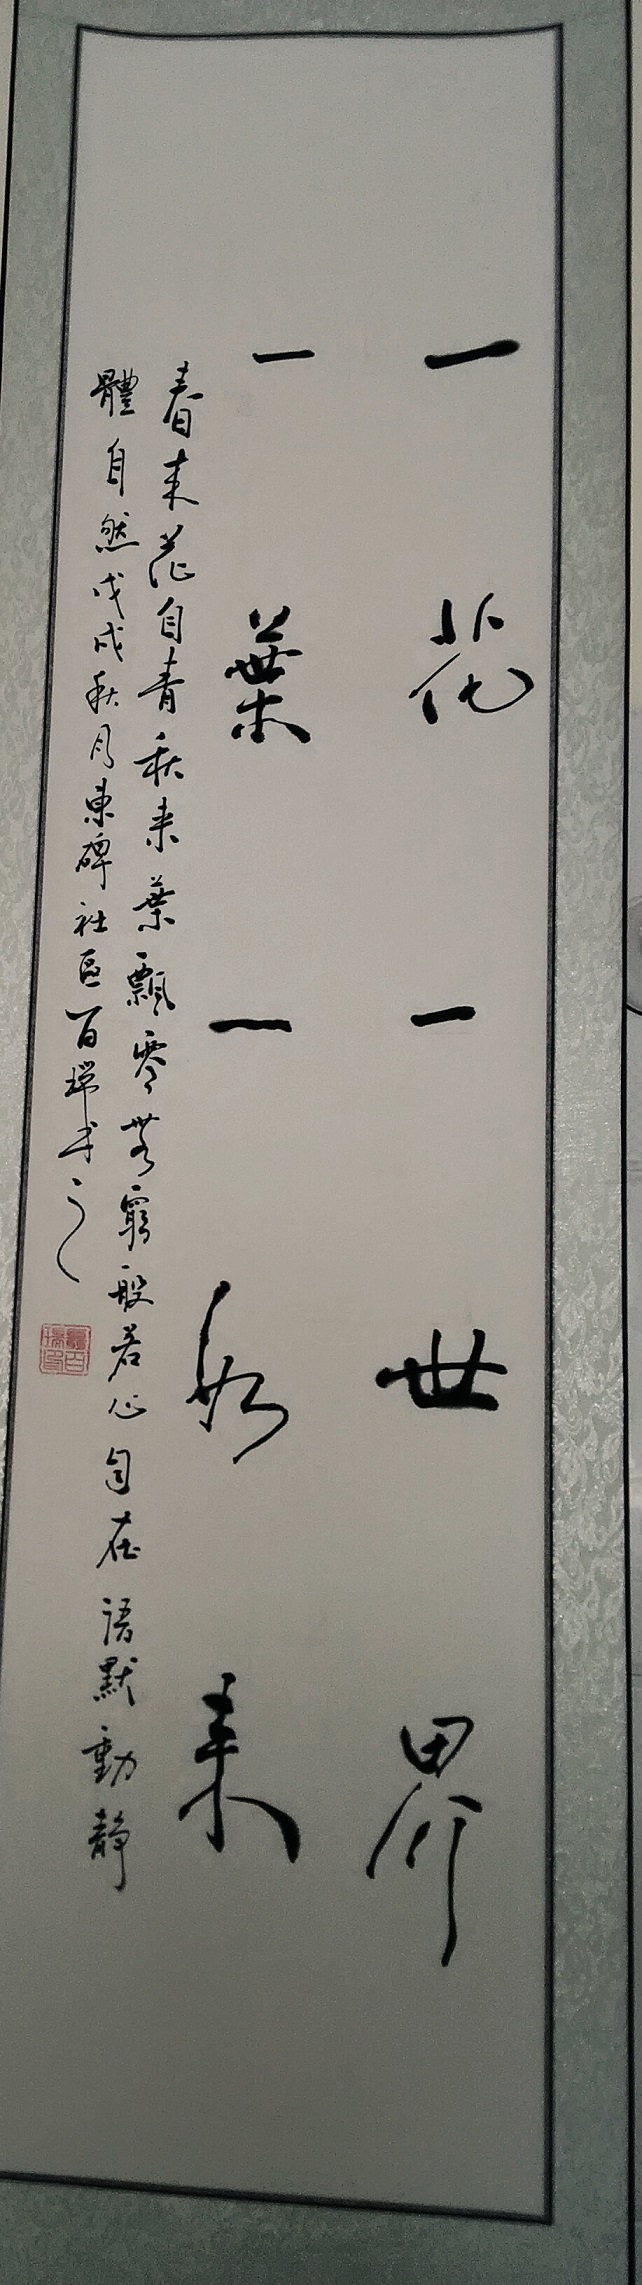 一花一世界
一葉一如来
春来花自青秋来葉飄零無窮般若心自在語默動静
體自然戊戌秋月東碑社區百瑞書